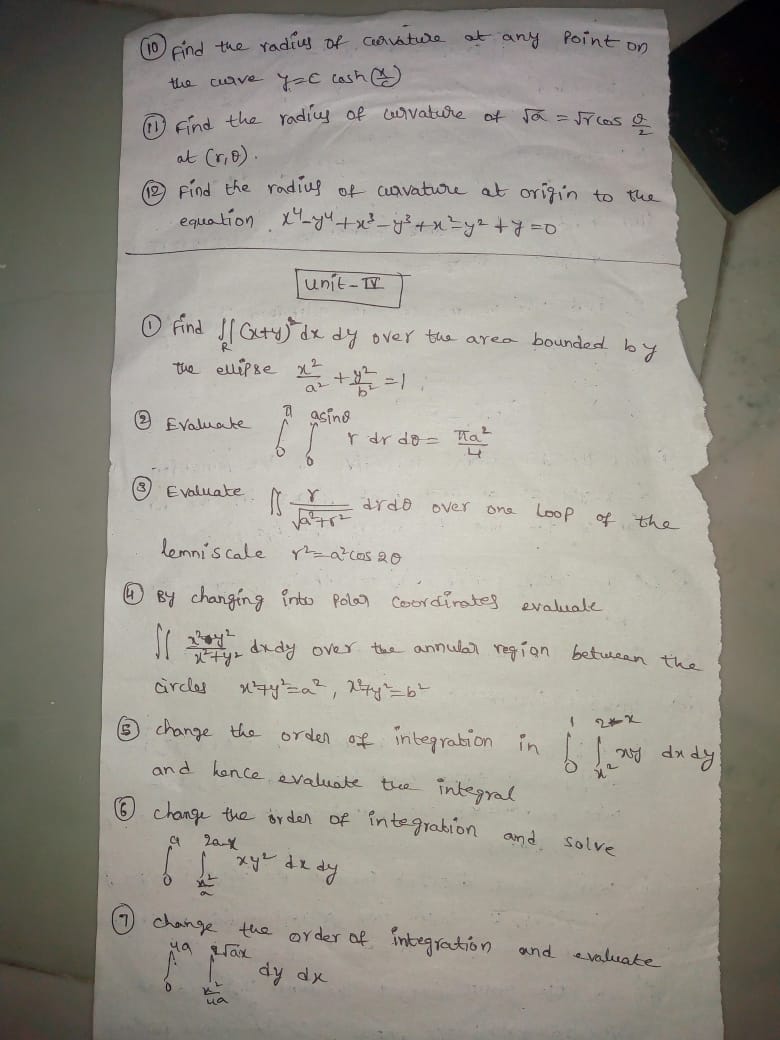 ⑩ Find the radius of curvature at any Point on
the curve y=c cosh(x/c)
⑪ Find the radius of curvature of √a = √r cos θ/2
at (r,θ).
⑫ Find the radius of curvature at origin to the
equation x⁴-y⁴+x³-y³+x²-y²+y=0
unit-IV
① Find ∬_R (x+y)² dx dy over the area bounded by
the ellipse x²/a² + y²/b² = 1
② Evaluate ∫₀^π ∫₀^{a sinθ} r dr dθ = πa²/4
③ Evaluate ∬ r/√(a²+r²) dr dθ over one loop of the
lemniscale r²=a²cos2θ
④ By changing into Polar Coordinates evaluate
∬ x²y²/(x²+y²) dxdy over the annular region between the
circles x²+y²=a², x²+y²=b²
⑤ change the order of integration in ∫₀^1 ∫_{x²}^{2-x} xy dx dy
and hence evaluate the integral
⑥ change the order of integration and solve
∫₀^a ∫_{x²/a}^{2a-x} xy² dx dy
⑦ change the order of integration and evaluate
∫₀^{4a} ∫_{x²/4a}^{2√ax} dy dx